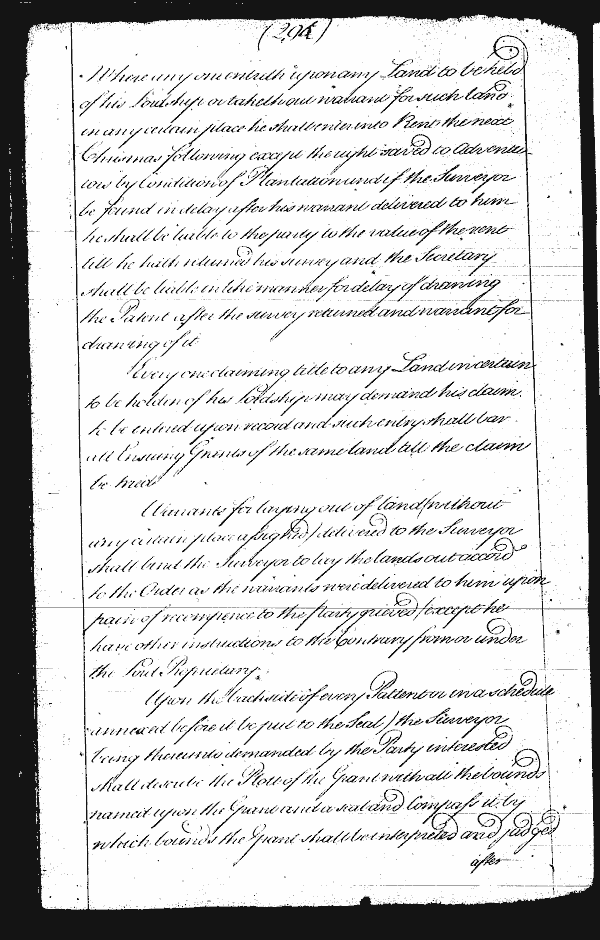 (294)
Where any one entreth upon any Land to be held
of his Lordship or taketh out warrant for such land
in any certain place he shall enter into Rent the next
Chrismas following except the right saved to Adventu-
rors by Condition of Plantation and if the Surveyor
be found in delay after his warrant delivered to him
he shall be liable to the party to the value of the rent
till he hath returned his survey and the Secretary
shall be liable in like manner for delay of drawing
the Patent after the survey returned and warrant for
drawing of it
Every one claiming title to any Land in certain
to be holden of his Lordship may demand his claim
to be entered upon record and such entry shall bar
all Ensuing Grants of the same land till the claim
be tried
Warrants for laying out of land (without
any certain place assigned) delivered to the Surveyor
shall bind the Surveyor to lay the lands out accord
to the Order as the warrants were delivered to him upon
pain of recompence to the party grieved (except he
have other instructions to the Contrary from or under
the Lord Proprietary.
Upon the backside of every Pattent or in a schedule
annexed before it be put to the Seal) the Surveyor
being thereunto demanded by the Party interested
shall describe the Plott of the Grant with all the bounds
named upon the Grant and a scal and Compass it by
which bounds the Grant shall be interpreted and judged
after